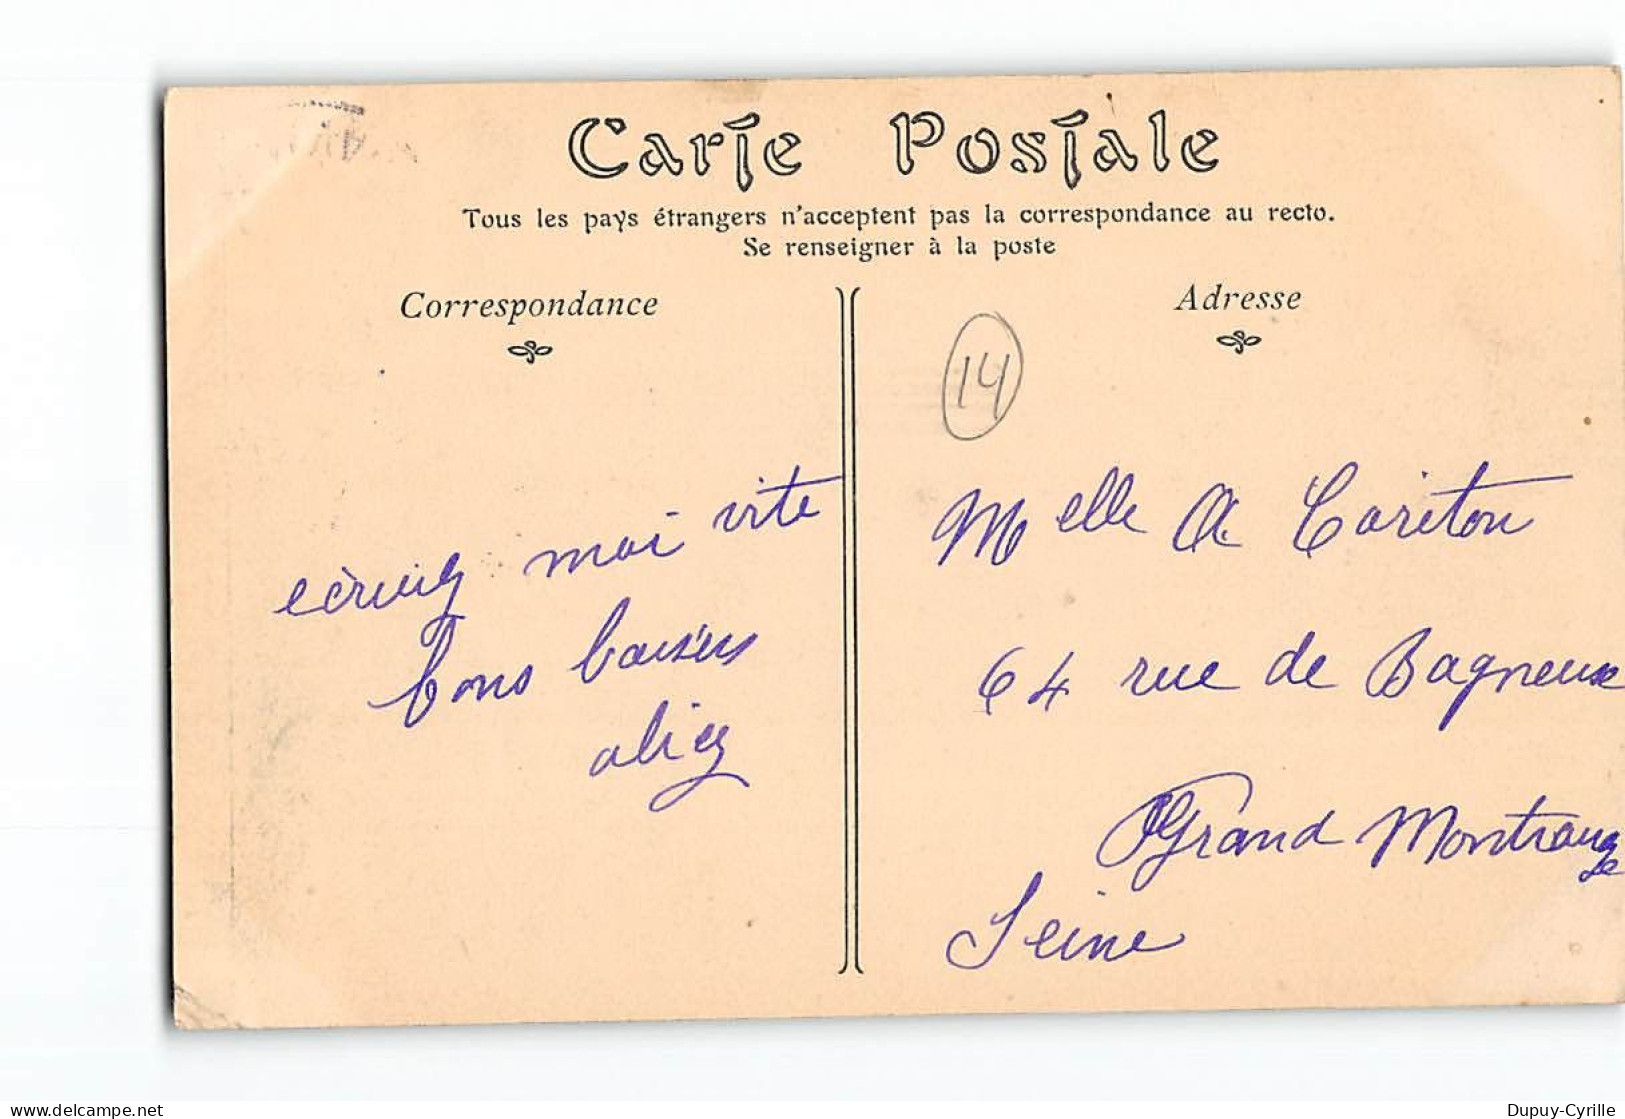 Carte Postale
Tous les pays étrangers n'acceptent pas la correspondance au recto.
Se renseigner à la poste
Correspondance
Adresse
14
ecrivez moi vite
bons baisers
Melle A Cariton
64 rue de Bagneux
Grand Montrouge
Seine
Dupuy-Cyrille